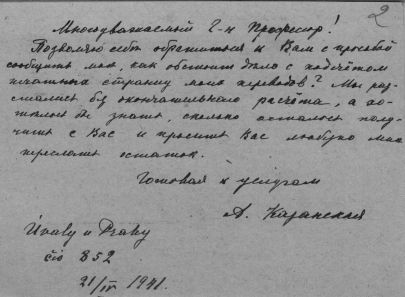 2
Многоуважаемый Г-н Профессор!
Позволяю себе обратиться к Вам с просьбой
сообщить мне, как обстоит дело с подсчётом
печатных страниц моих переводов? Мы рас-
стались без окончательного расчёта, а хо-
телось бы знать, сколько осталось полу-
чить с Вас и просить Вас любезно мне
переслать остаток.
Готовая к услугам
А. Каранская
Úvaly u Prahy
čís 852
21/IV 1941.